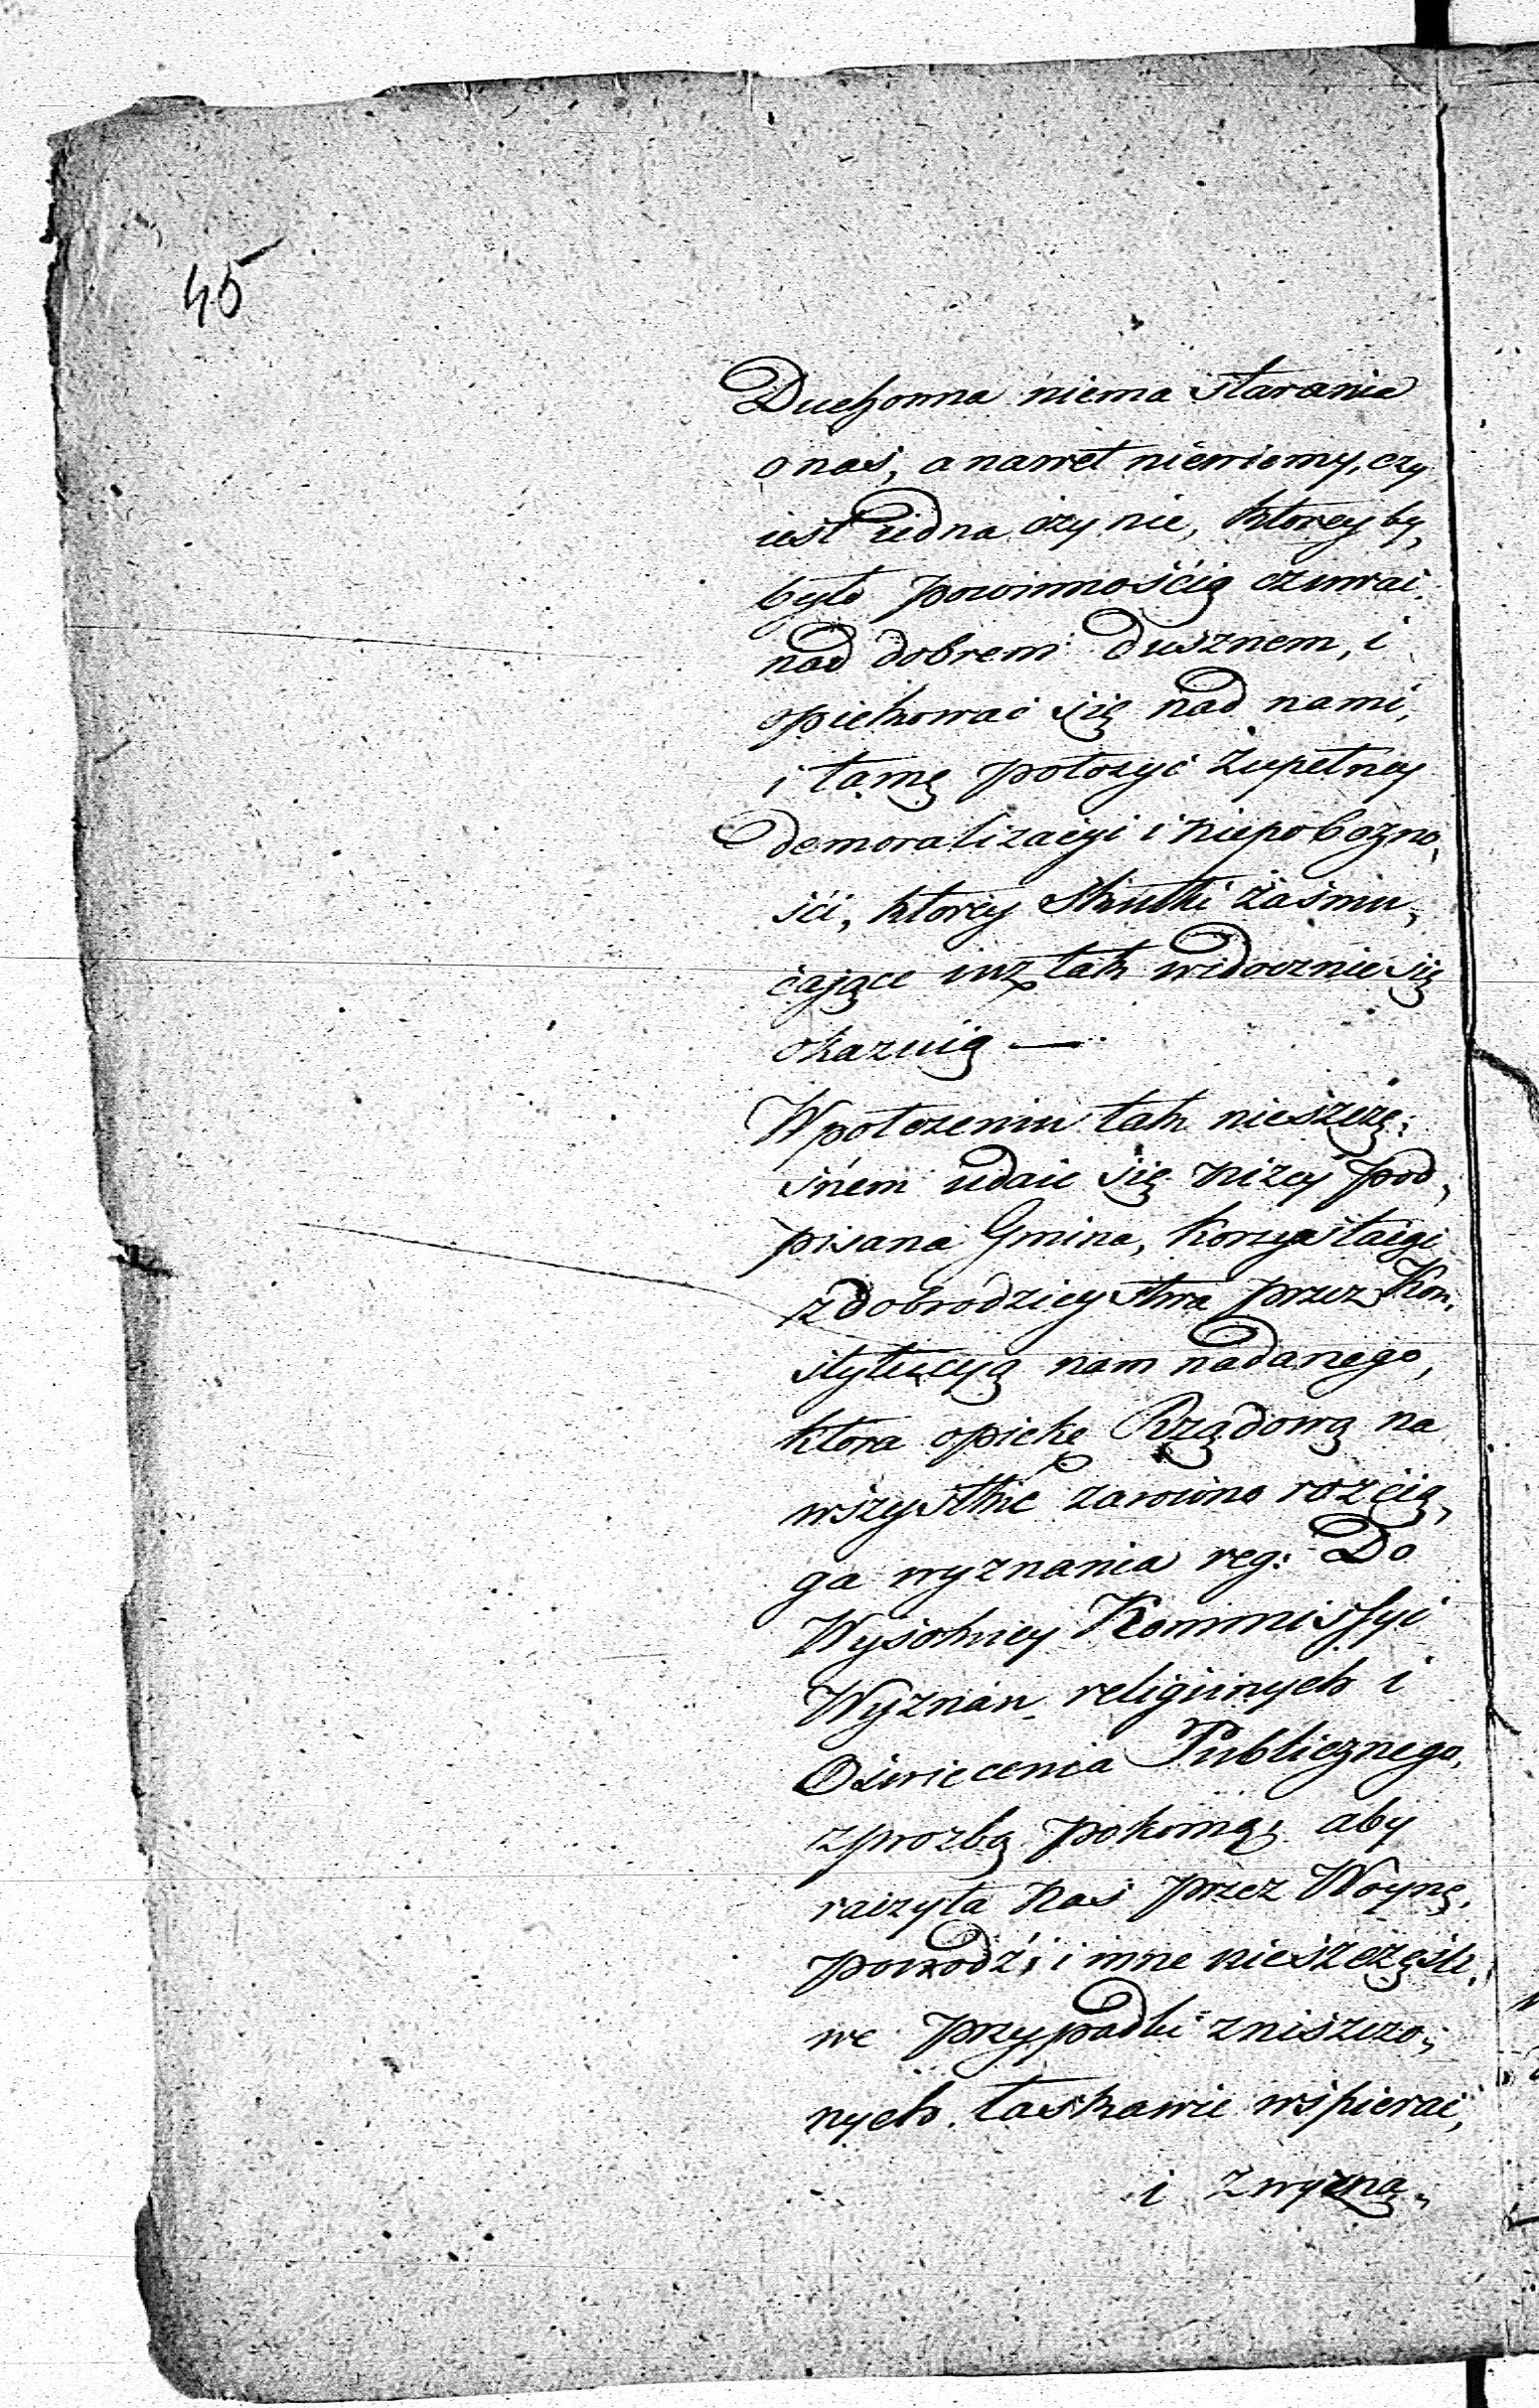 45
Duchowna niema starania
o nas, a nawet niewiemy, czy
iest iedna czy nie, ktoreyby,
było powinnością czuwać
nad dobrem dusznem, i
opiekować się nad nami,
i tamę położyć zupełney
demoralizacyi i niepobożno,
ści, ktorey skutki zasmu,
caiące iuż tak widocznie się
okazuią —
W położeniu tak nieszczę,
snem udaie się niżey pod,
pisana Gmina, korzystaiąc
z dobrodzieystwa przez Kon,
stytucyą nam nadanego,
ktora opiekę Rządową na
wszystkie zarowno rozcią,
ga wyznania reg: Do
Wysokiey Kommissyi
Wyznań religiinych i
Oświecenia Publicznego,
z prozbą pokorną, aby
raczyła nas przez Woynę,
powodź, i inne nieszczęśli,
we przypadki zniszczo,
nych łaskawie wspierać,
i z wyzna,